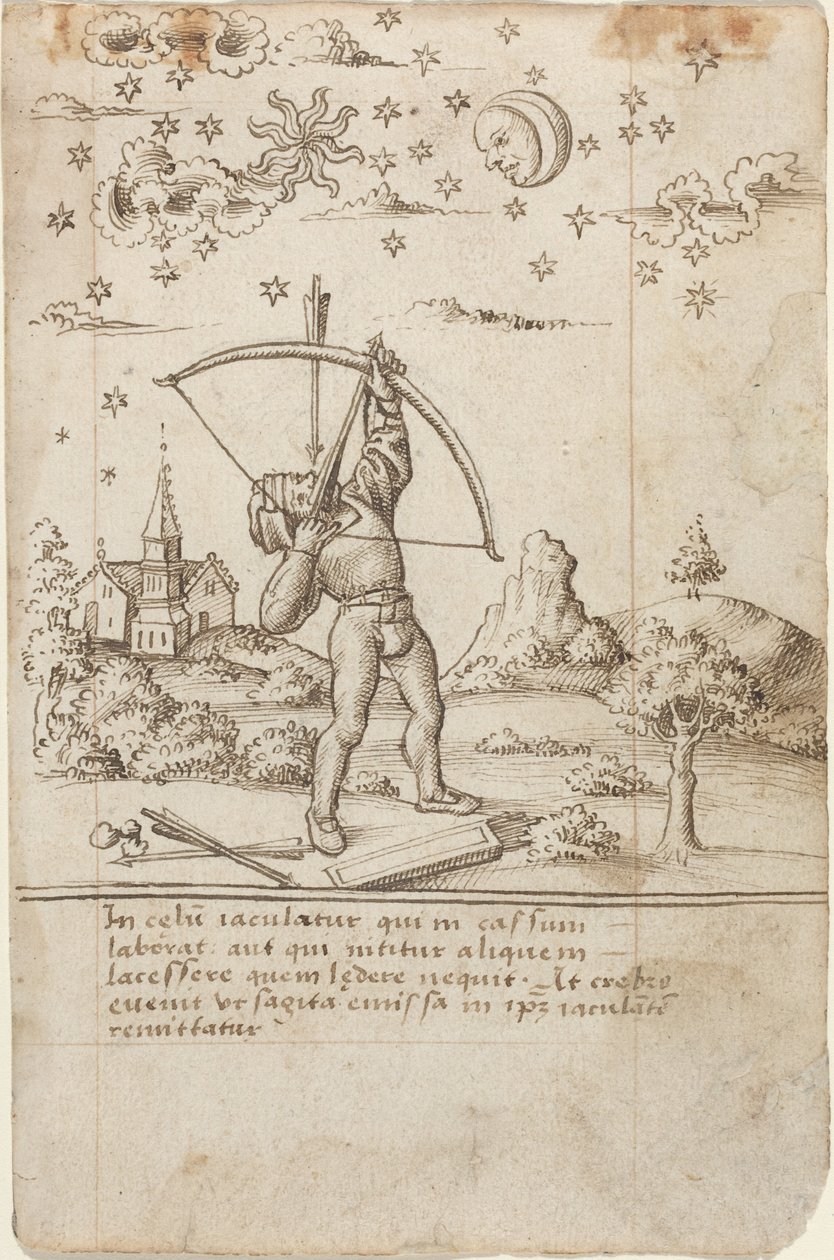 In cęlū iaculatur qui in cassum
laborat: aut qui nititur aliquem
lacessere quem lędere nequit. At crebro
euenit vt sagita emissa in ipꝫ iaculātē
remittatur